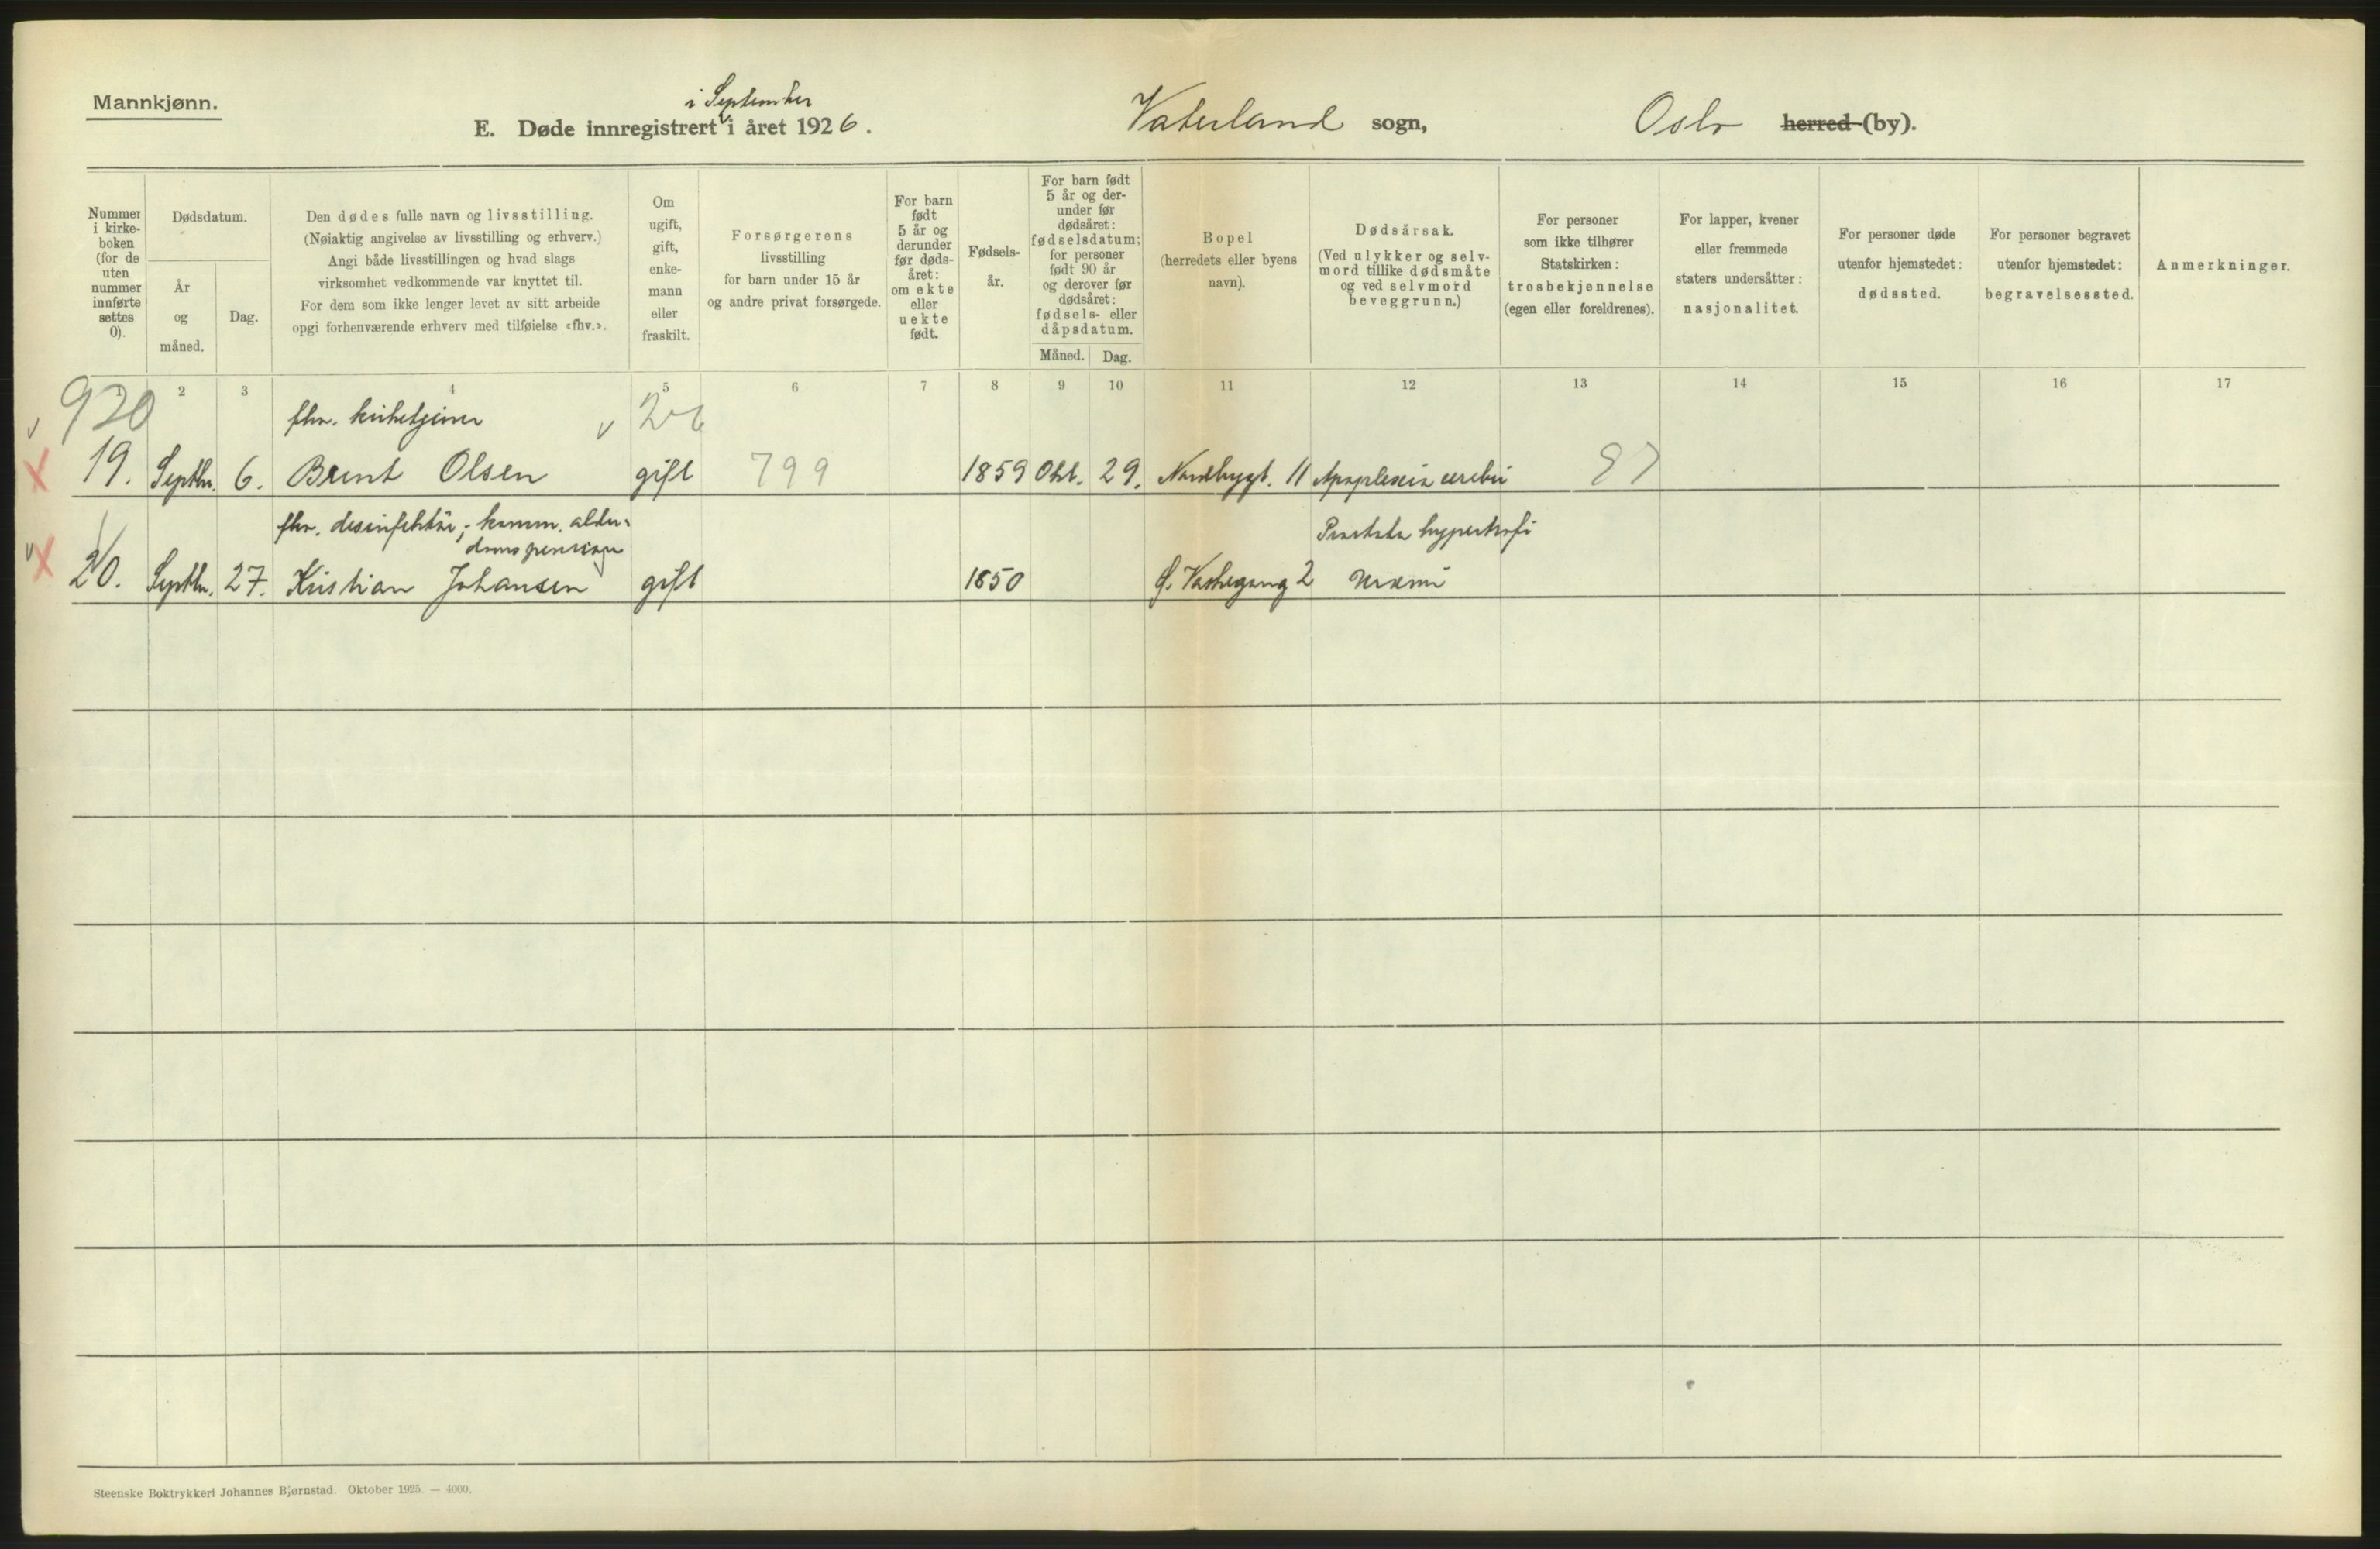 Mannkjønn.
i September
E. Døde innregistrert i året 1926.
Vaterland sogn,
Oslo herred (by).
Nummer i kirkeboken (for de uten nummer innførte settes 0).
Dødsdatum.
År og måned.
Dag.
Den dødes fulle navn og livsstilling.
(Nøiaktig angivelse av livsstilling og erhverv.)
Angi både livsstillingen og hvad slags
virksomhet vedkommende var knyttet til.
For dem som ikke lenger levet av sitt arbeide
opgi forhenværende erhverv med tilføielse «fhv.».
Om ugift, gift, enkemann eller fraskilt.
Forsørgerens
livsstilling
for barn under 15 år
og andre privat forsørgede.
For barn født 5 år og derunder før dødsåret: om ekte eller uekte født.
Fødselsår.
For barn født 5 år og derunder før dødsåret: fødselsdatum; for personer født 90 år og derover før dødsåret: fødsels- eller dåpsdatum.
Måned. Dag.
Bopel
(herredets eller byens
navn).
Dødsårsak.
(Ved ulykker og selvmord tillike dødsmåte og ved selvmord beveggrunn.)
For personer
som ikke tilhører
Statskirken:
trosbekjennelse
(egen eller foreldrenes).
For lapper, kvener
eller fremmede
staters undersåtter:
nasjonalitet.
For personer døde
utenfor hjemstedet:
dødssted.
For personer begravet
utenfor hjemstedet:
begravelsessted.
Anmerkninger.
2 3 4 5 6 7 8 9 10 11 12 13 14 15 16 17
920
fhv. kirketjener
19. Septbr. 6. Brent Olsen gift 799 1859 Okt. 29. Nordbygt. 11 Apoplexia cerebri 97
fhv. desinfektør; komm. alder-
domspensjon
Prostata hypertrofi
20. Septbr. 27. Kristian Johansen gift 1850 S. Vaskegang 2 Uræmi
Steenske Boktrykkeri Johannes Bjørnstad. Oktober 1925. — 4000.